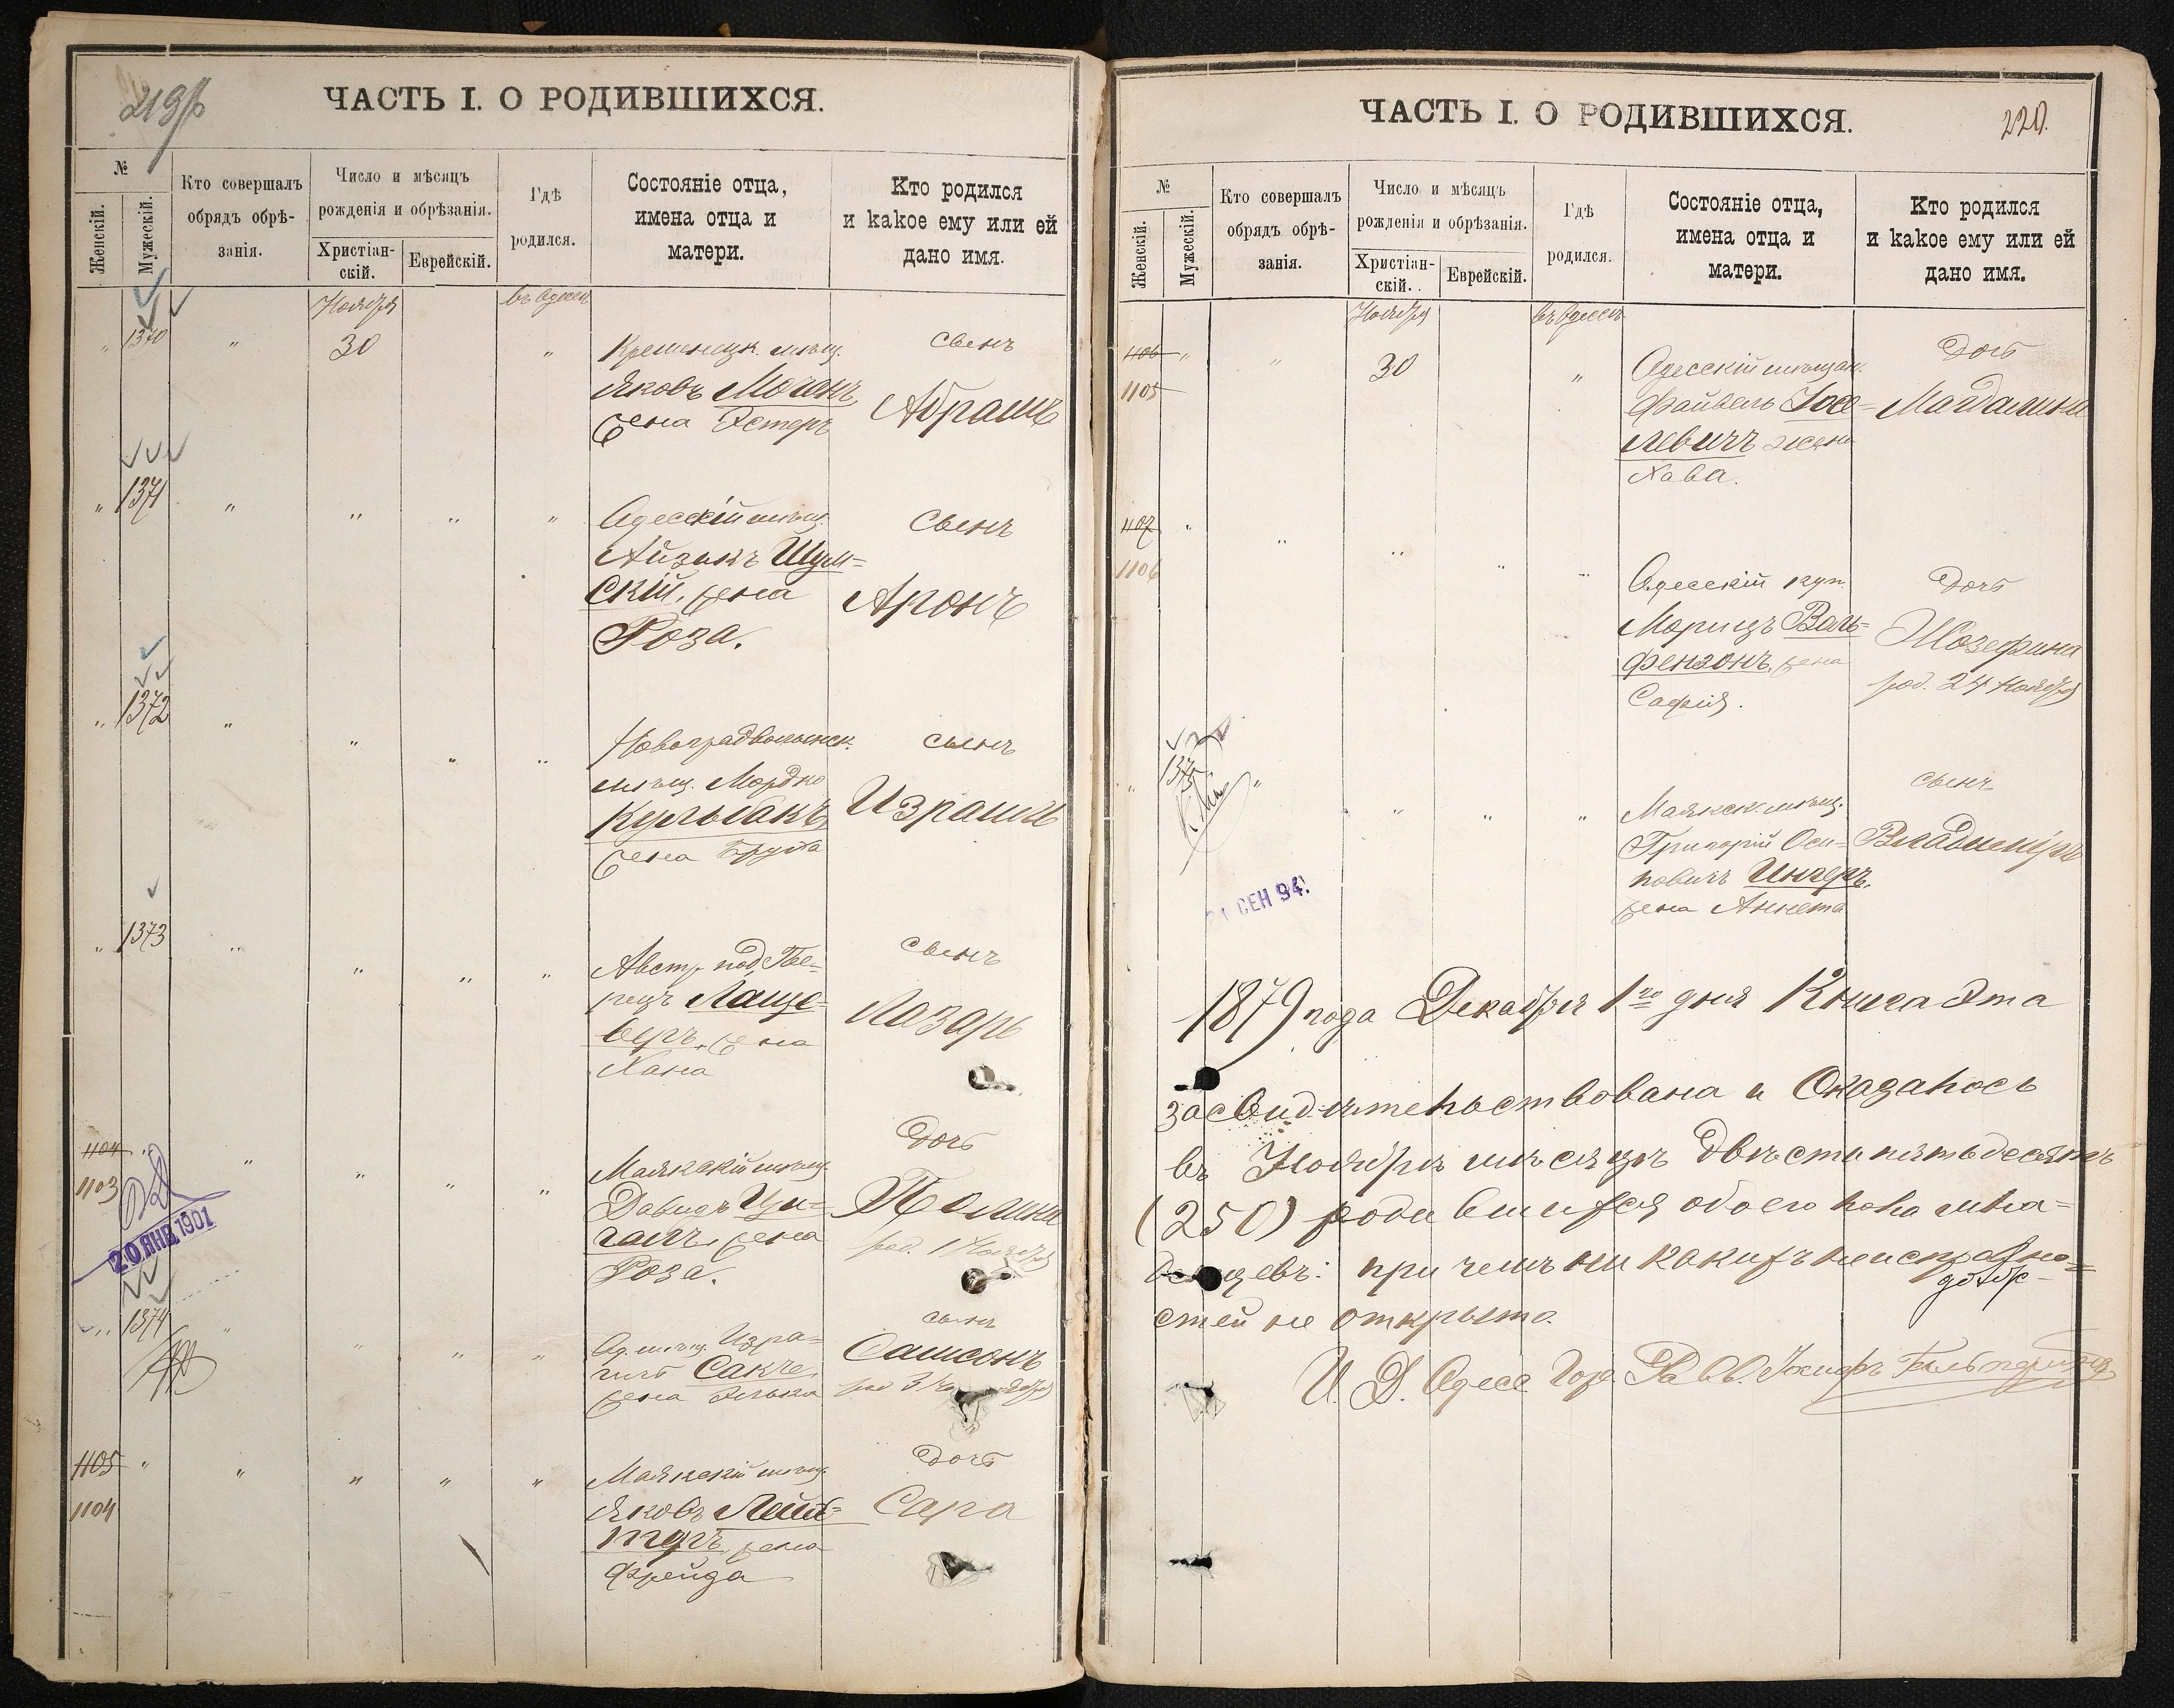 219
ЧАСТЬ I. О РОДИВШИХСЯ.
№
Женскій.
Мужескій.
Кто совершалъ
обрядъ обрѣ-
занія.
Число и мѣсяцъ
рожденія и обрѣзанія.
Христіан-
скій.
Еврейскій.
Гдѣ
родился.
Состояніе отца,
имена отца и
матери.
Кто родился
и какое ему или ей
дано имя.
Ноября
въ Одессѣ
" 1370 " 30 "
Кременецк. мѣщ.
Яковъ Моганъ
жена Эстеръ
сынъ
Абрамъ
" 1371 " " " "
Одесскій мѣщ.
Айзикъ Шум=
скій, жена
Роза.
Сынъ
Аронъ
" 1372 " " " "
Новоградволынск.
мѣщ. Мордко
Кульбакъ,
жена Фрума
сынъ
Израиль
" 1373 " " " "
Австр. под.
Лаще=
веръ, жена
Хана
сынъ
Лазарь
1104 " " " " "
1103
20 ЯНВ 1901
Маякскій мѣщ.
Давидъ Цы=
ганъ, жена
Роза.
Дочь
Полина
род. 1 Ноября
" 1374 " " " "
Од. мѣщ. Изра=
иль Сакчеръ
жена
сынъ
Самсонъ
1105 " " " " "
1104
Маякскій мѣщ.
Яковъ
жена
Фрейда
Дочь
Сара
ЧАСТЬ I. О РОДИВШИХСЯ.
220.
№
Женскій.
Мужескій.
Кто совершалъ
обрядъ обрѣ-
занія.
Число и мѣсяцъ
рожденія и обрѣзанія.
Христіан-
скій.
Еврейскій.
Гдѣ
родился.
Состояніе отца,
имена отца и
матери.
Кто родился
и какое ему или ей
дано имя.
Ноября
въ Одессѣ
1106 " " 30 "
1105
Одесскій мѣщан.
Файвель Іосе=
левичъ жена
Хава.
Дочь
Магдалина
1107 " " " " "
1106
Одесскій куп.
Морицъ Валь=
фензонъ, жена
Софія.
Дочь
Жозефина
род. 24 Ноября
" 1375 " " " "
21 СЕН 94.
Маякск. мѣщ.
Григорій Оси=
повичъ Унгеръ,
жена Аннета
сынъ
Владиміръ
1879 года Декабря 1го дня Книга эта
засвидѣтельствована и Оказалось
въ Ноябрѣ мѣсяцѣ двѣсти пятьдесятъ
(250) родившихся обоего пола мла=
денцевъ: при чемъ ни какихъ неисправно=
стей не открыто.
И. Д. Одес. Гор.